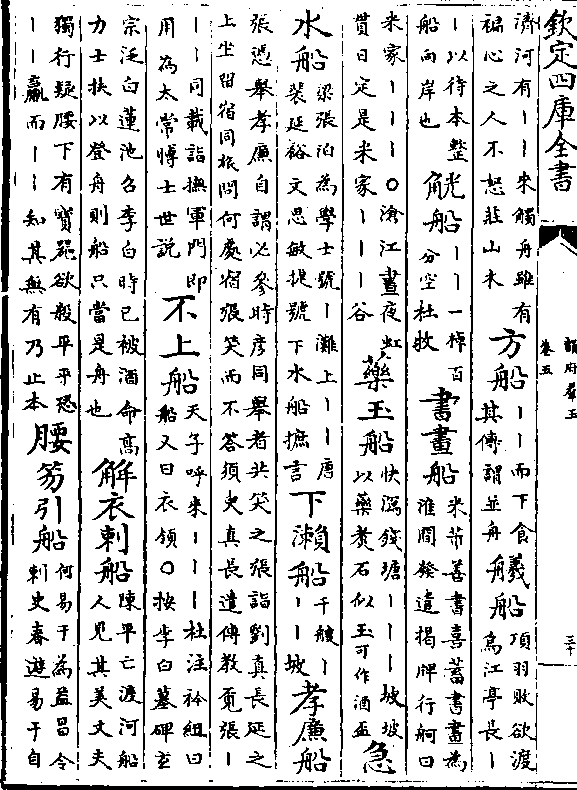 欽定四庫全書
韻府羣玉
卷五
三十
濟河有丨丨來觸舟雖有
褊心之人不怒莊山木
方船
丨丨而下食
其傳謂並舟
艤船
項羽敗欲渡
烏江亭長丨
丨以待本整
船向岸也
觥船
丨丨一棹百
分空杜牧
書畫船
米芾善書喜蓄書畫為
淮間發遣揭牌行舸曰
米家丨丨丨〇滄江晝夜虹
貫日定是米家丨丨丨谷
藥玉船
快瀉錢塘丨丨丨坡坡
以藥煑石似玉可作酒盃
急
水船
梁張泊為學士號丨灘上丨丨唐
裴廷裕文思敏捷號下水船摭言
下瀨船
千艘丨
丨丨坡
孝廉船
張憑舉孝廉自謂必參時彦同舉者共笑之張詣劉真長延之
上坐留宿同旅問何處宿張笑而不答須臾真長遣傳教覓張丨
丨丨同載詣撫軍門即
用為太常博士世説
不上船
天子呼來丨丨丨杜注衿紐曰
船又曰衣領〇按李白墓碑玄
宗泛白蓮池召李白時已被酒命高
力士扶以登舟則船只當是舟也
解衣刺船
陳平亡渡河船
人見其美丈夫
獨行疑腰下有寶器欲殺平平恐
丨丨臝而丨丨知其無有乃止本
腰笏引船
何易于為益昌令
刺史春遊易于自